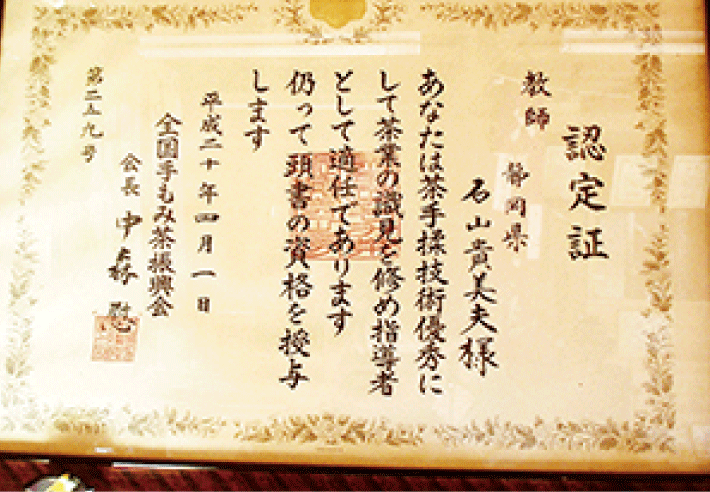 認定証
教師 静岡県
石山貴美夫様
あなたは茶手揉技術優秀に
して茶業の識見を修め指導者
として適任であります
仍って頭書の資格を授与
します
平成二十年四月一日
全国手もみ茶振興会
会長 中森 慰
第二五九号